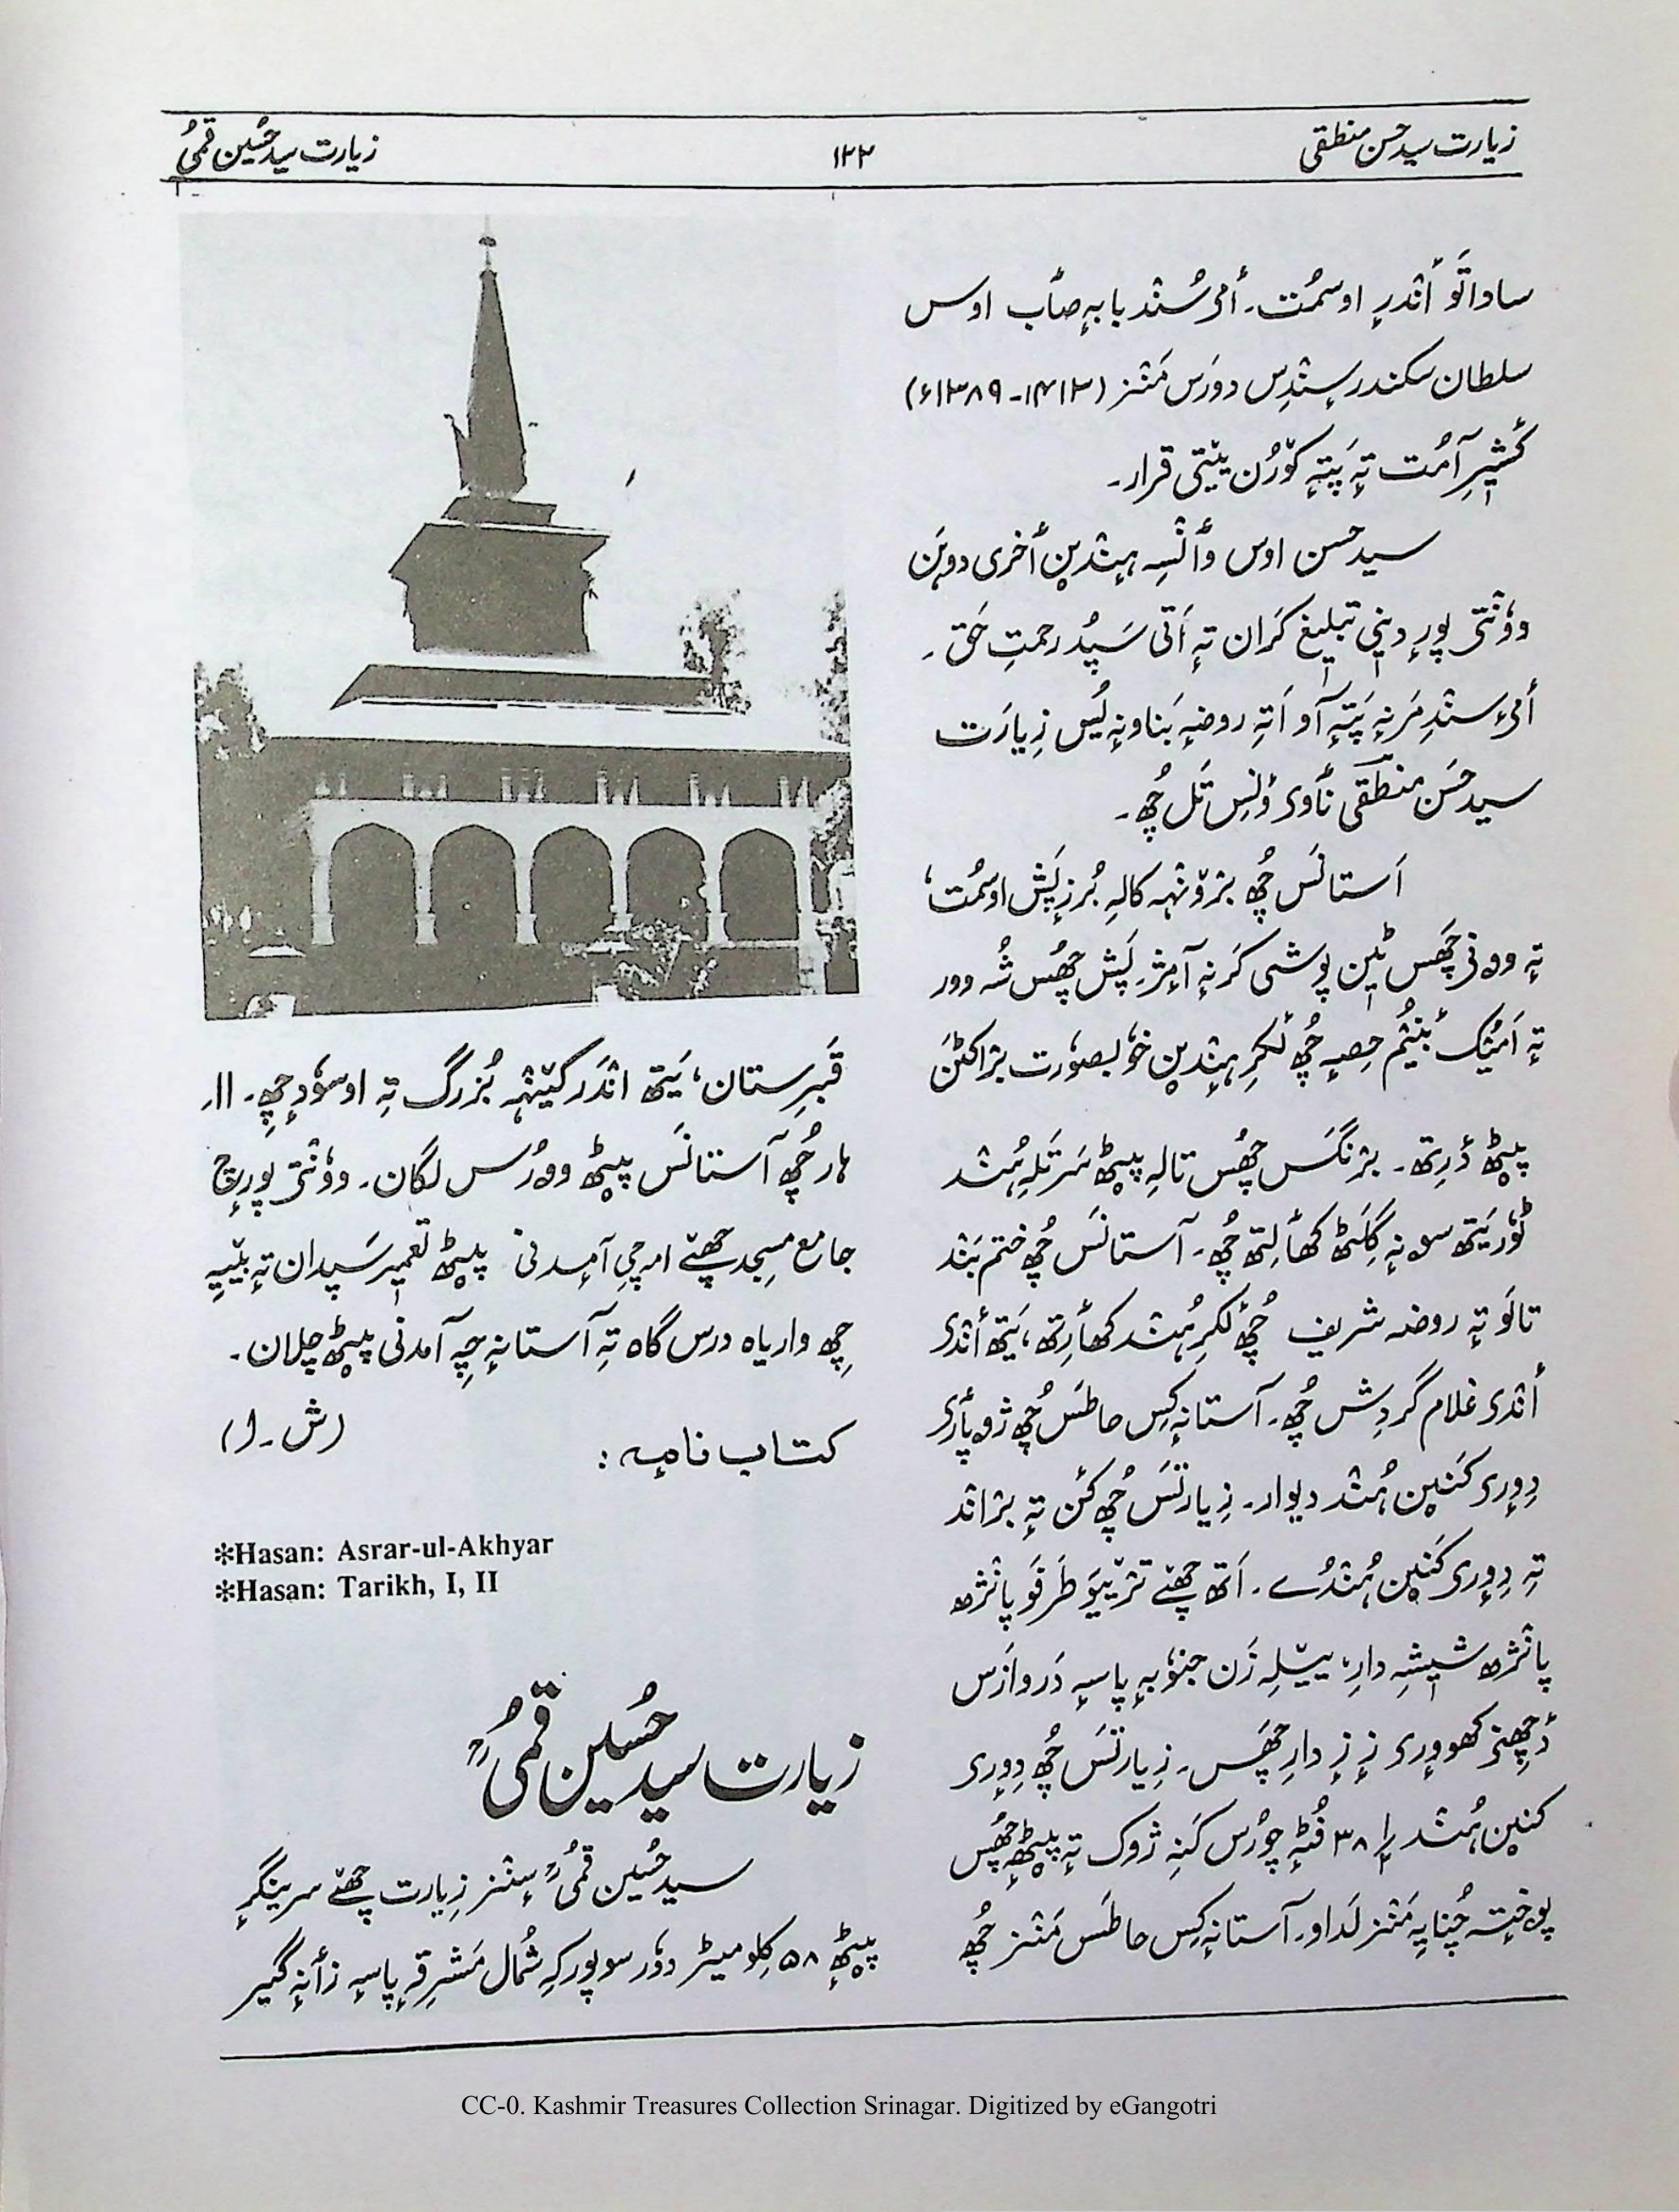 زیارت سید حسن منطقی
۱۲۲
زیارت سید حسین قمیؒ
ساداتَو أندرٕ اوسمُت۔ أمۍ سُند بابہٕ صٲب اوس
سلطان سکندر سٕندِس دورَس مَنٛز (۱۴۱۳-۱۳۸۹ء)
کٔشیٖرِ آمُت تہٕ پَتہٕ کوٚرُن یٔتی قرار۔
سید حسن اوس وٲنٛسہِ ہٕندین أخری دوہَن
وۄنٛتۍ پورٕ دیٖنی تبلیٖغ کَران تہٕ أتی سَپُد رحمتِ حَق۔
أمۍ سٕندِ مَرنہٕ پَتہٕ آو أتہِ روضہٕ بَناونہٕ یُس زِیارَت
سید حسَن منطقی ناوٕ وٕنۍس تَل چُھ۔
أستانَس چُھ برٛونٛہہ کالہِ بُرزٕ پَش اوسمُت،
تہٕ وۄنۍ چَھس ٹیٖن پوشی کَرنہٕ آمٕژ۔ پَش چُھس شہ وور
تہٕ أمیُک بٔنیُٛم حِصہٕ چُھ لٔکرِ ہٕندین خوٗبصوٗرت برٛاکٹَن
پیٚٹھ دٔرِتھ۔ برٛنگَس چُھس تالہِ پیٚٹھ سَرتَلہِ ہُنٛد
ٹوٗر یَتھ سۄنہٕ گِلَٹھ کھٲلِتھ چُھ۔ آستانَس چُھ ختم بَند
تالَو تہٕ روضہ شریف چُھ لٔکرِ ہُنٛد کھٲرِتھ، یَتھ أنٛدۍ
أنٛدۍ غلام گردِش چُھ۔ آستانہٕ کِس حاطَس چُھ ژوپٲرۍ
دِوٕرۍ کَنیٚن ہُنٛد دیوار۔ زِیارتَس چُھ کٔن تہٕ برٛانٛد
تہٕ دِوٕرۍ کَنیٚن ہُنٛدُے۔ أتھ چھےٚ ترٛیٚیَو طَرفَو پانٛژھ
پانٛژھ شیٖشہٕ دارِ، ییٚلہِ زَن جنوٗبہٕ پاسہٕ دَروازَس
دٔچھنۍ کھووٕرۍ زٕ زٕ دارِ چَھس۔ زِیارتَس چُھ دِوٕرۍ
کنیٚن ہُنٛد ۳۸ فُٹہٕ چورُس کَنہِ ژوک تہٕ پیٚٹھٕ چُھس
پوختہٕ چُنایہِ مَنٛز لَداو۔ آستانہٕ کِس حاطَس مَنٛز چُھ
قَبرِستان، یَتھ انٛدَر کیٚنٛہہ بُزرگ تہٕ اوسوٗدٕ چِھ۔ ۱۱
ہار چُھ آستانَس پیٚٹھ وۄرُس لگان۔ وۄنٛتۍ پورٕچ
جامع مسجد چھےٚ امہِ چہِ آمدنی پیٚٹھ تعمیٖر سَپدان تہٕ بیٚیہِ
چِھ واریاہ درس گاہ تہِ آستانہٕ چہِ آمدنی پیٚٹھ چلان۔
(ش۔ ا)
کتاب نامہٕ:
*Hasan: Asrar-ul-Akhyar
*Hasan: Tarikh, I, II
زیارت سید حُسین قمیؒ
سید حُسین قمیؒ سٕنٛز زِیارت چھےٚ سرینگرٕ
پیٚٹھٕ ۵۸ کِلومیٹر دوٗر سوپورکہِ شُمال مَشرِقہٕ پاسہٕ زٲنہٕ گیر
CC-0. Kashmir Treasures Collection Srinagar. Digitized by eGangotri